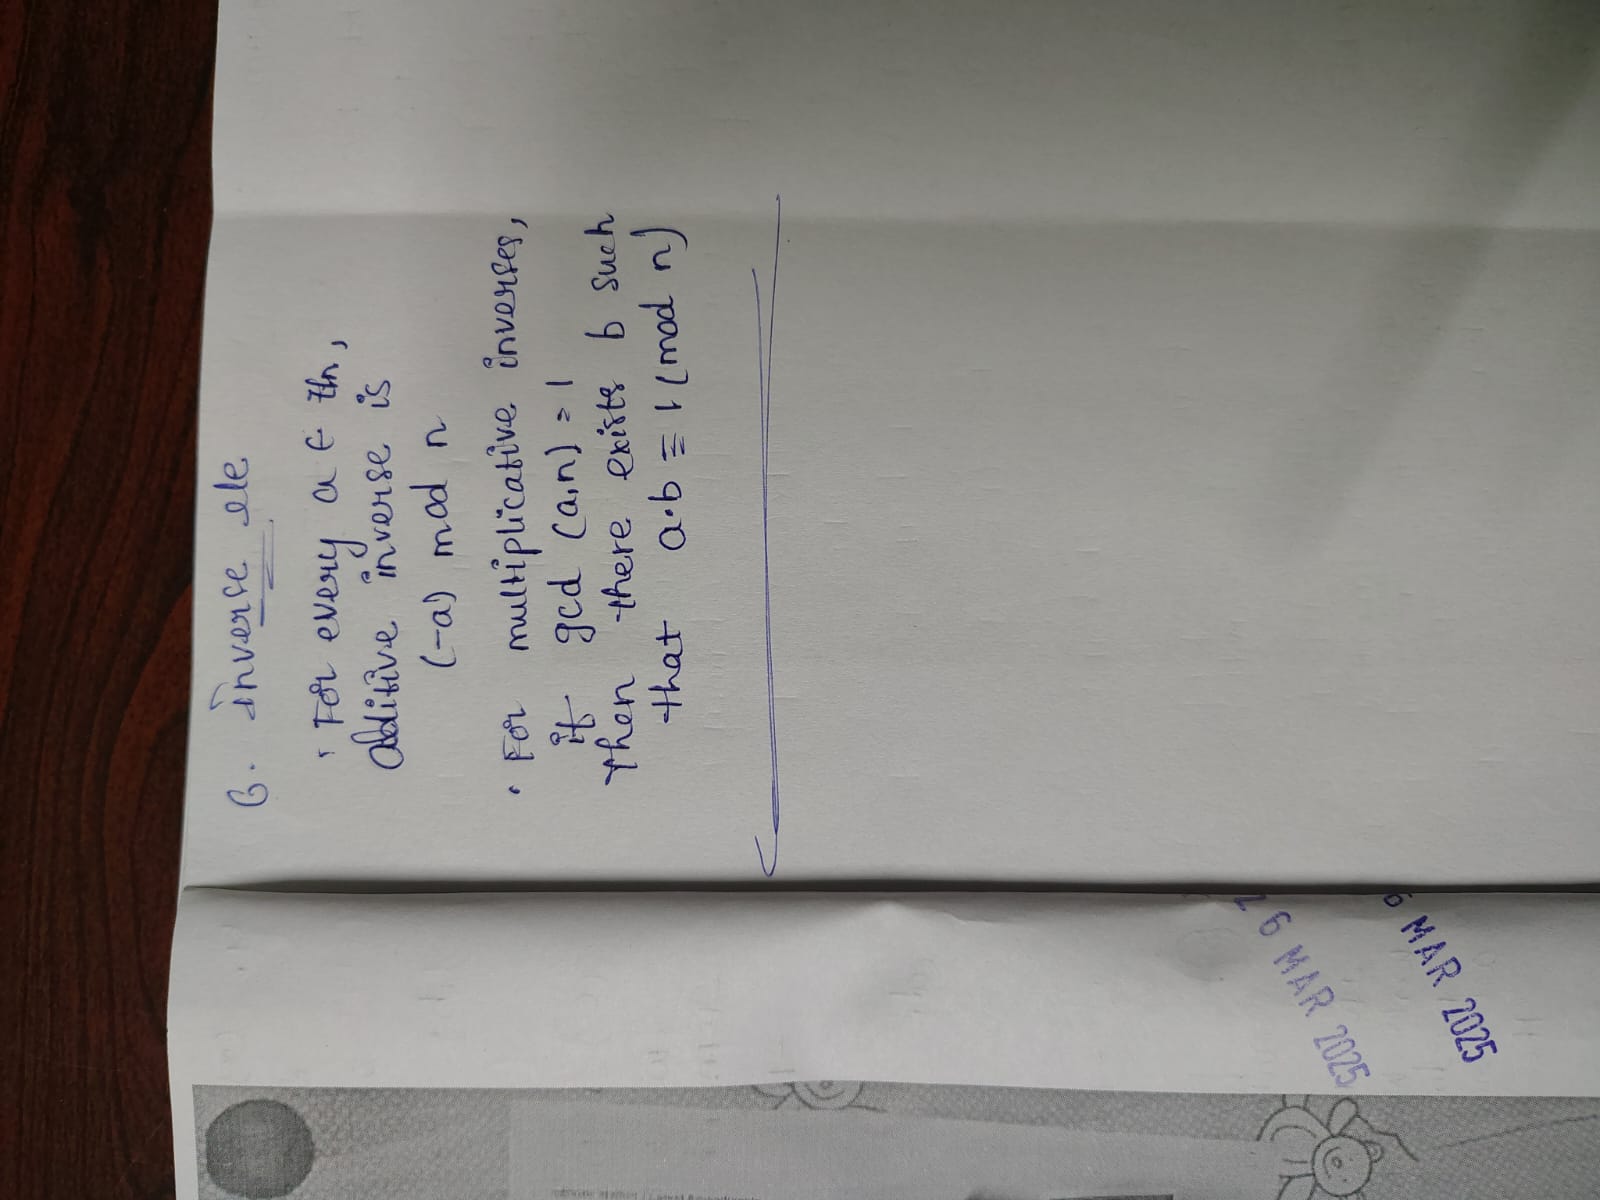 6. Inverse ele
· For every a ∈ Zn,
additive inverse is
(-a) mod n
· For multiplicative inverses,
if gcd (a,n) = 1
then there exists b such
that a·b ≡ 1 (mod n)
26 MAR 2025
6 MAR 2025